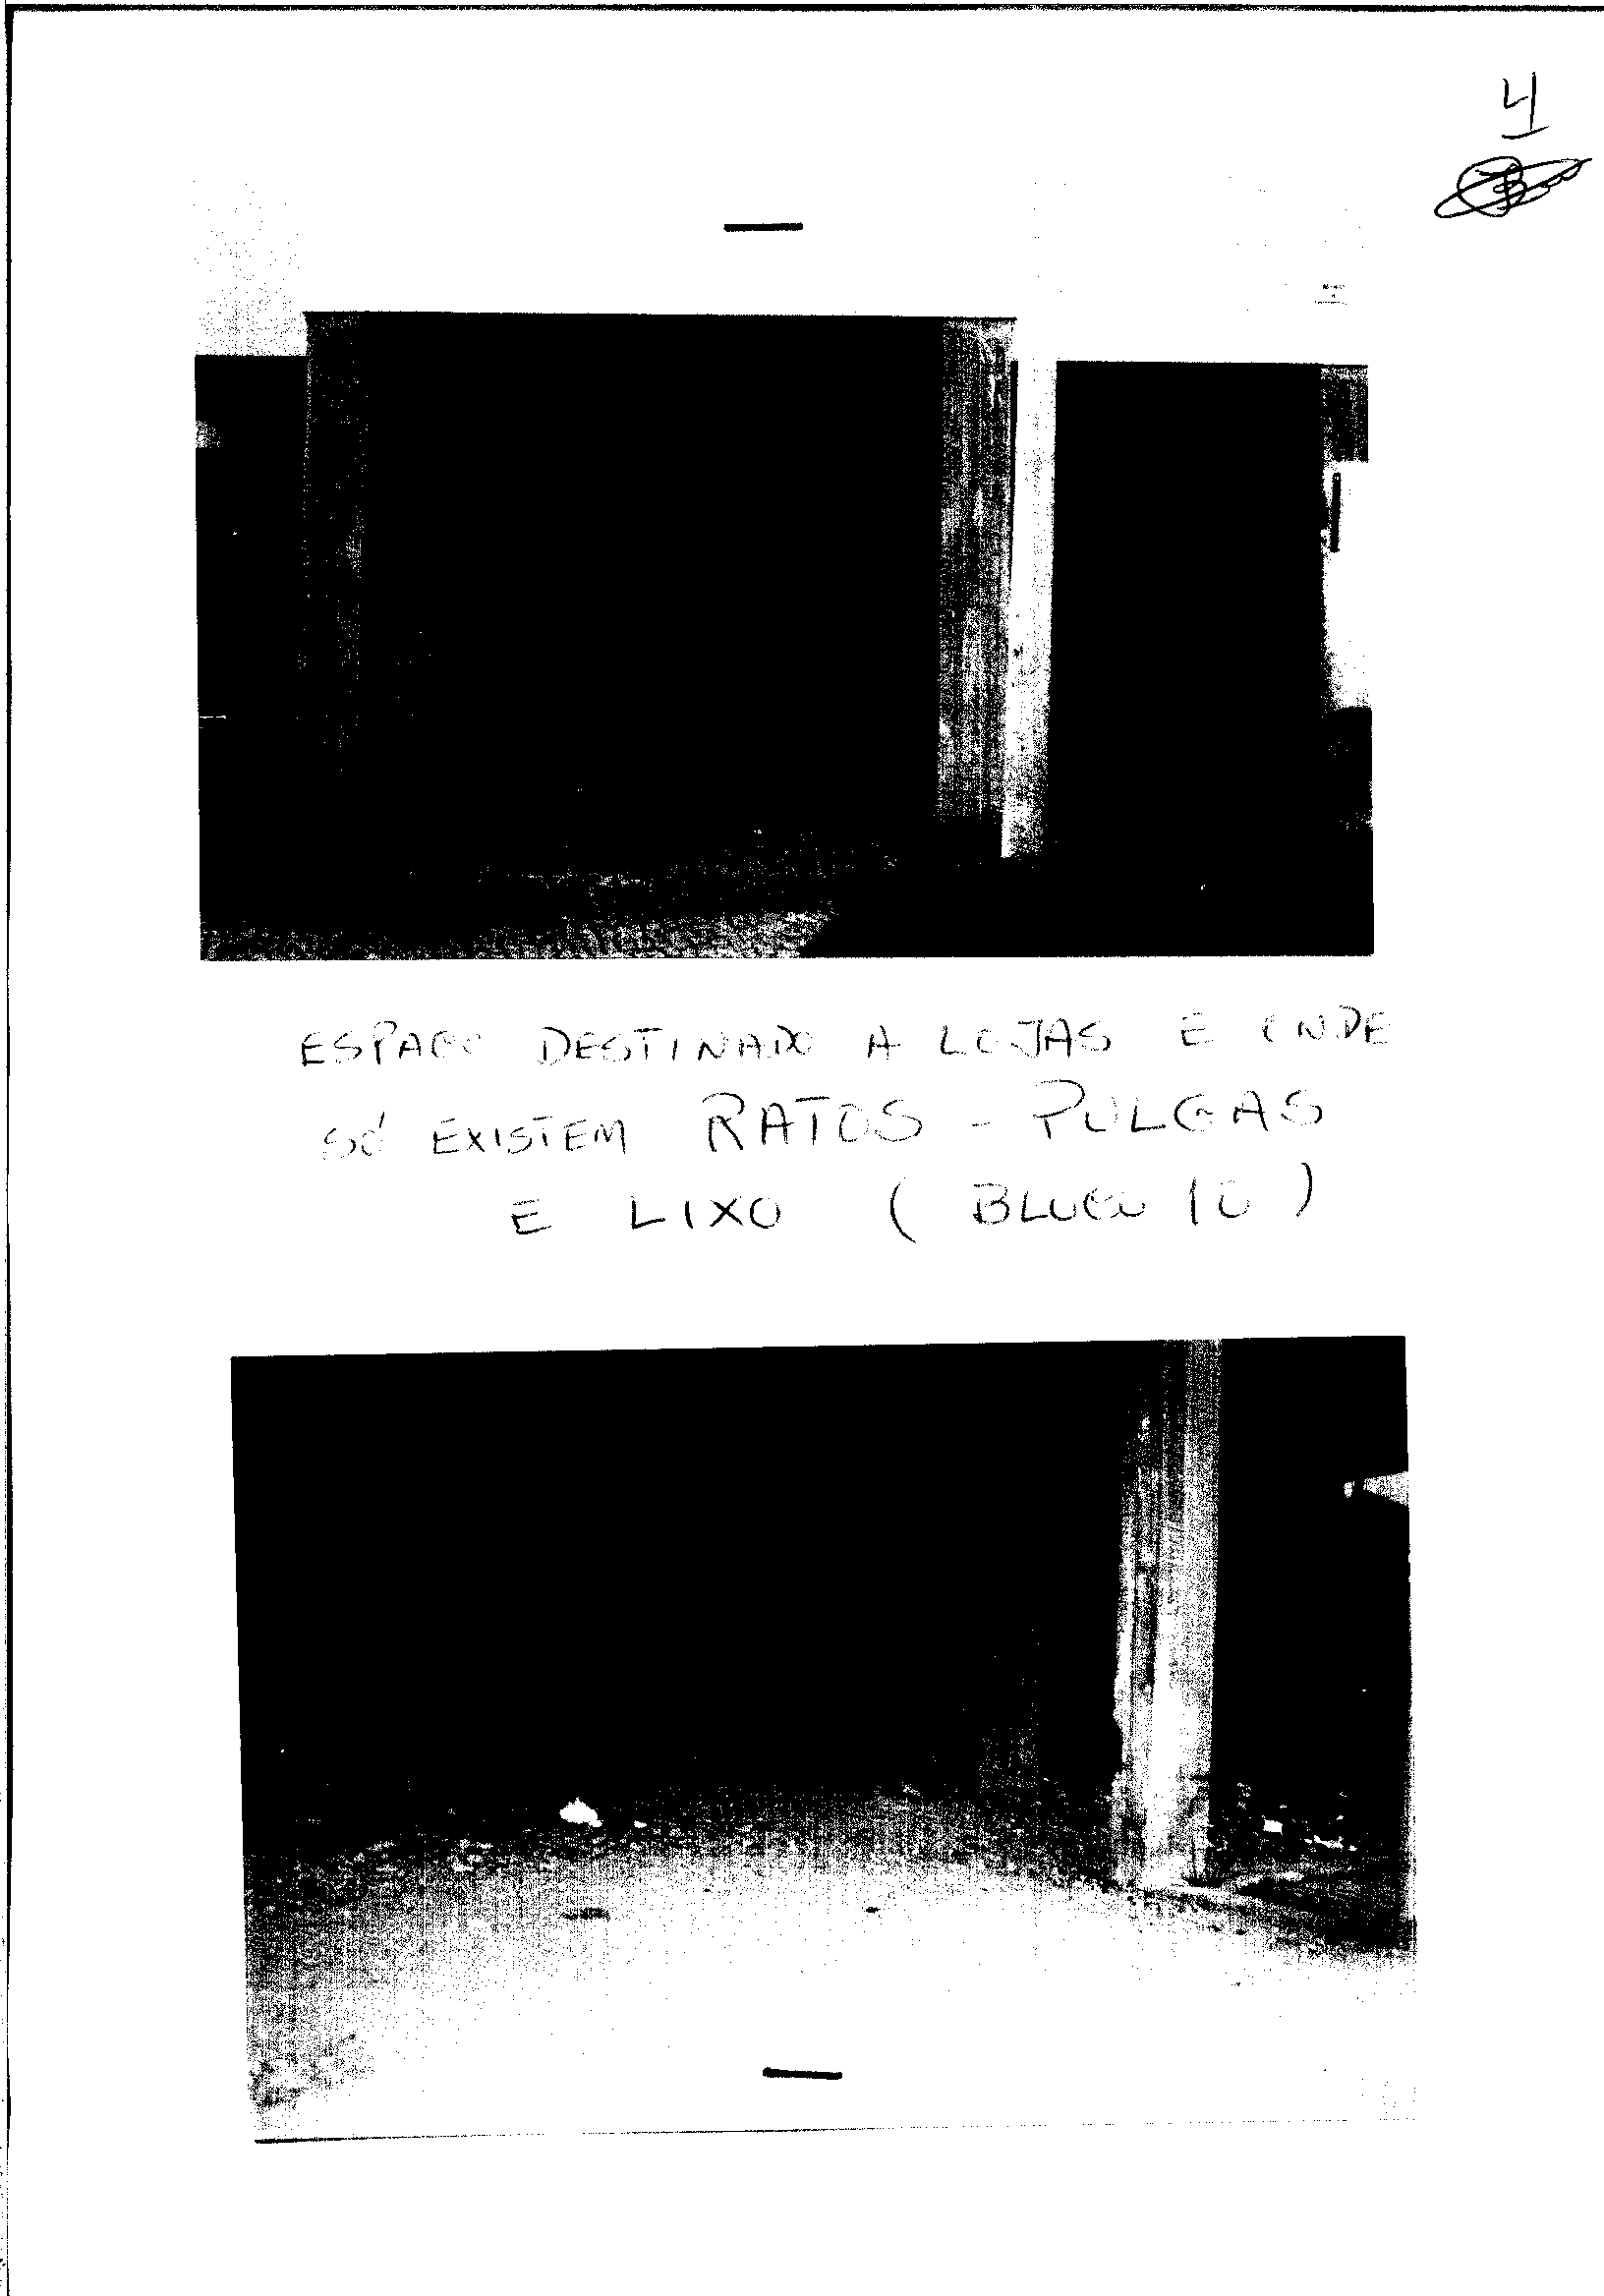 4
ESPAÇO DESTINADO A LOJAS E ONDE
SÓ EXISTEM RATOS - PULGAS
E LIXO ( BLOCO 10 )